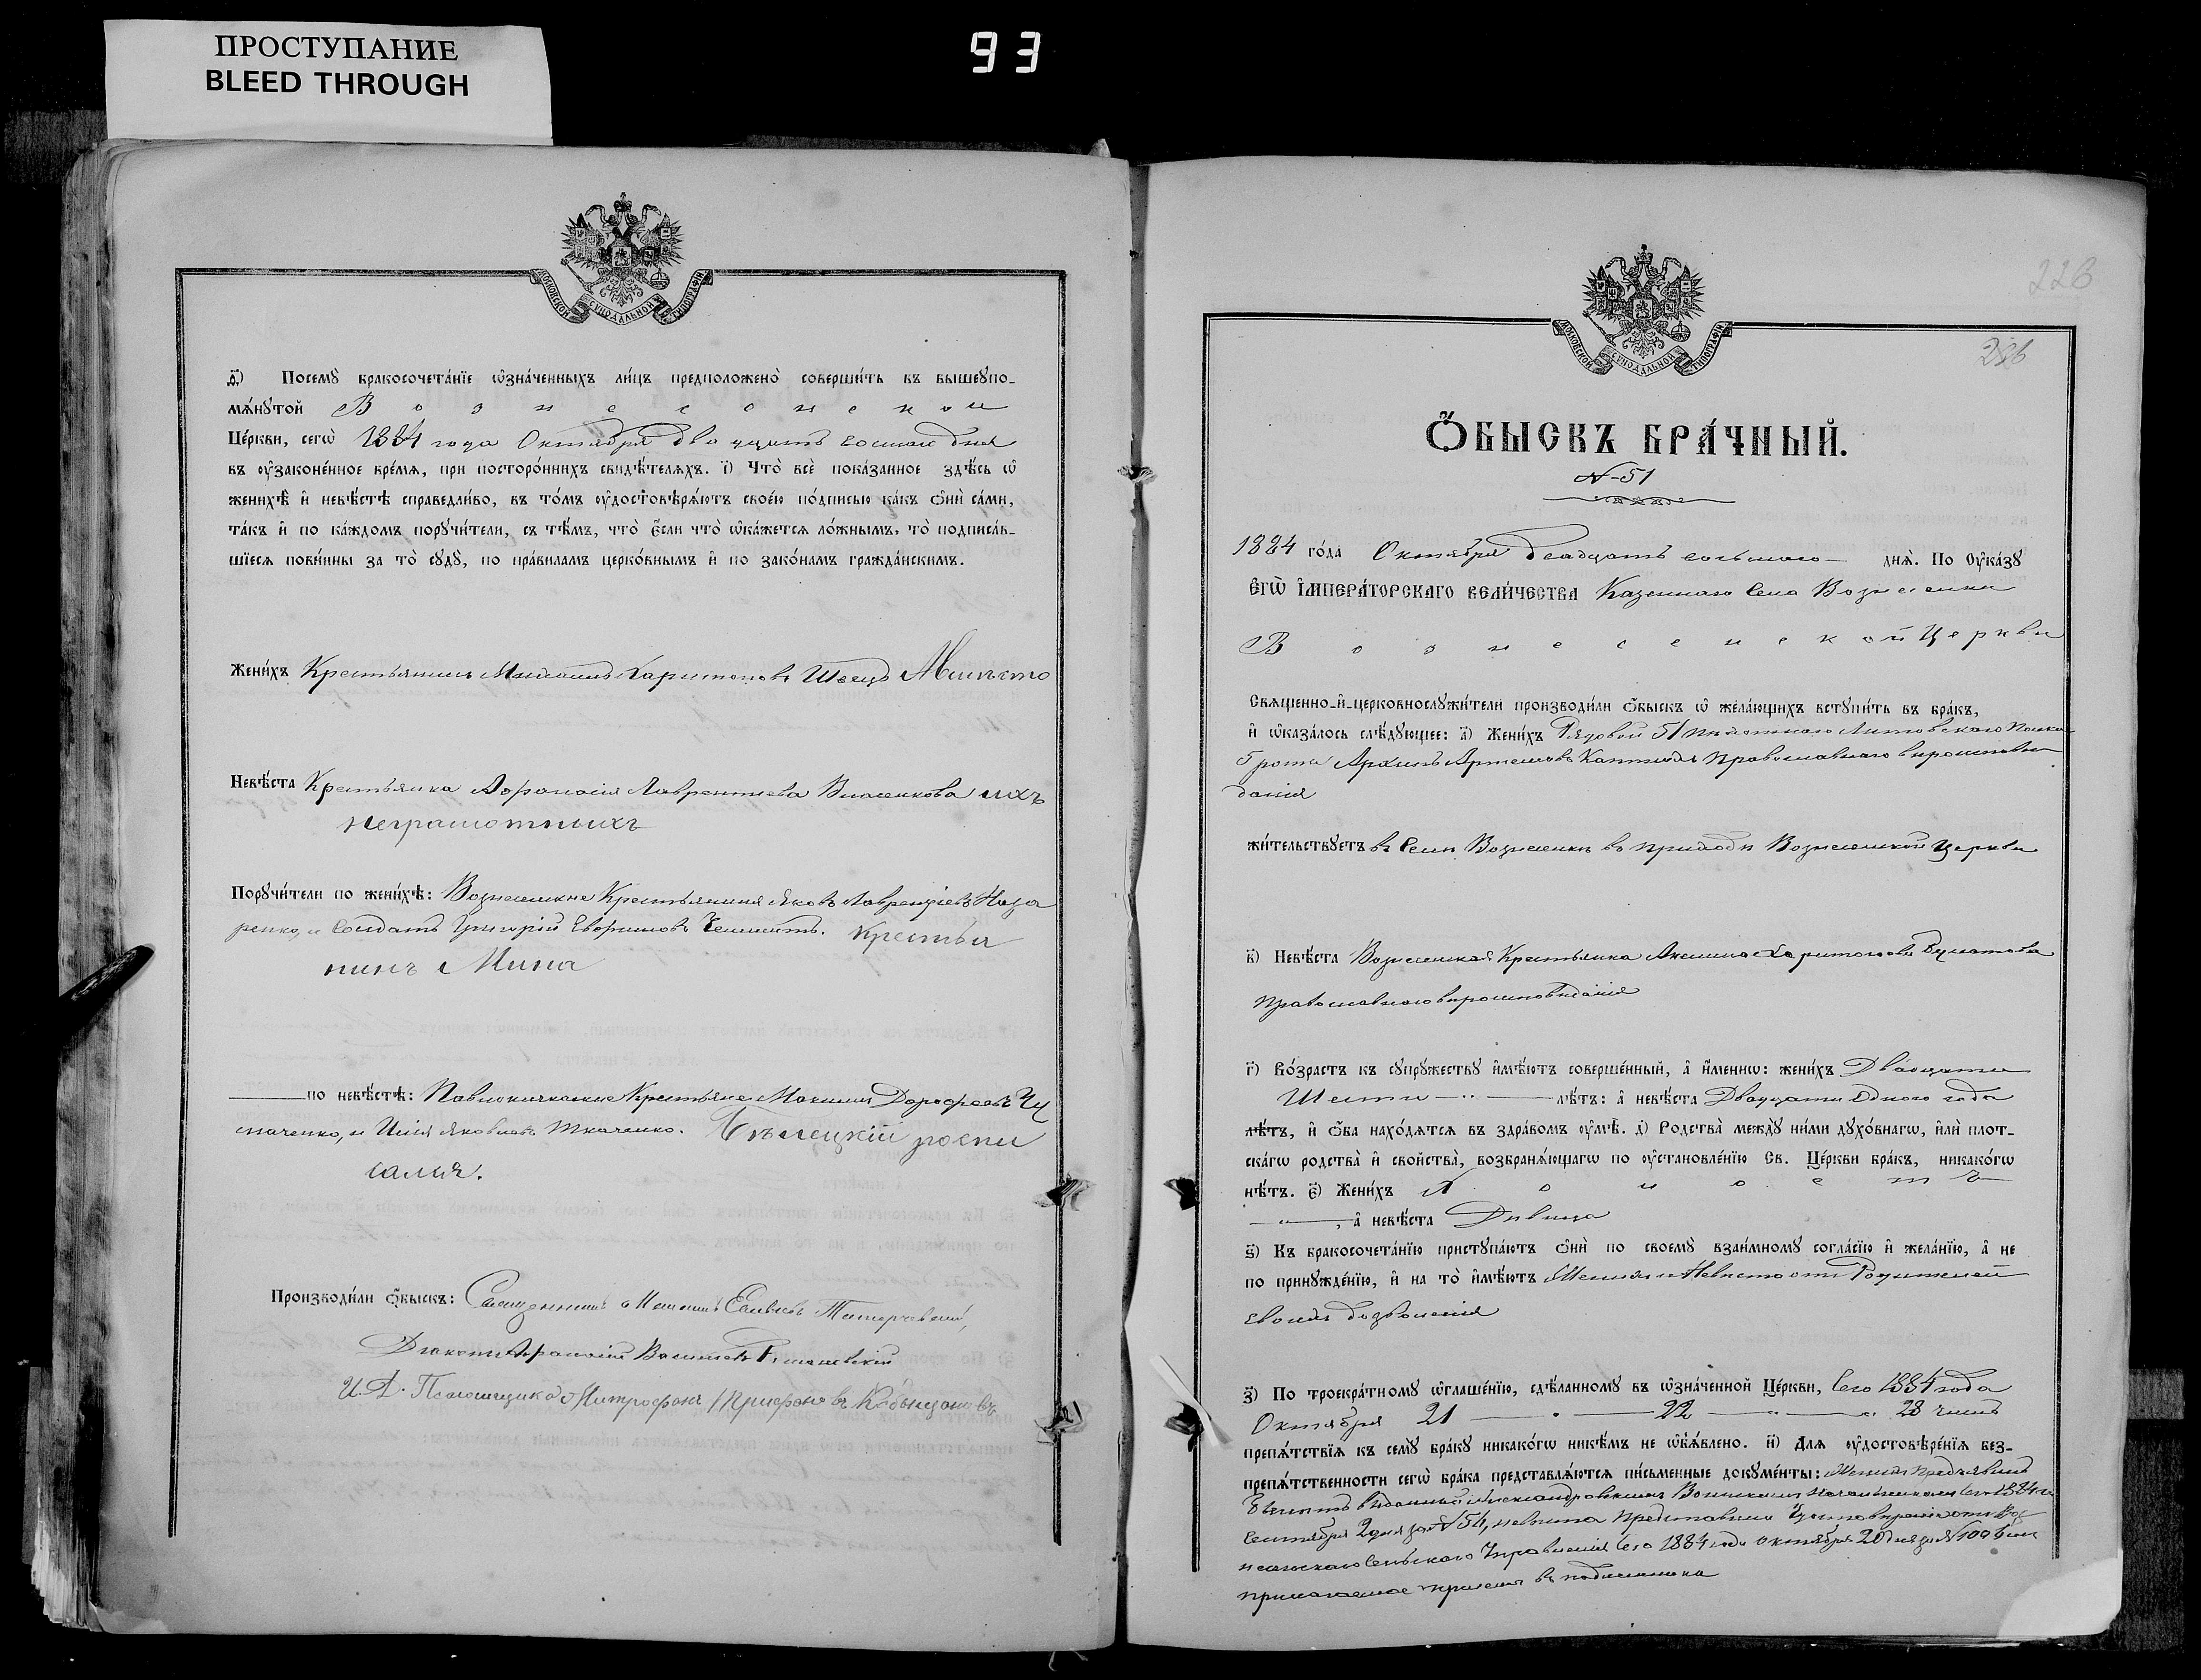 ПРОСТУПАНИЕ
BLEED THROUGH
93
МОСКОВСКОЙ СѴНОДАЛЬНОЙ ТИПОГРАФІИ
ѳ҃) Посемꙋ̀ бракосочета́нїе ѡ҆зна́ченныхъ ли́цъ предположено̀ соверши́ть въ вышеꙋпо-
мѧ́нꙋтой Вознесенской
Це́ркви, сегѡ̀ 1884 года Октября двадцать восьмаго дня
въ ᲂу҆законе́нное вре́мѧ, при посторо́ннихъ свидѣ́телѧхъ. і҃) Что̀ всѐ пока́занное здѣ́сь ѡ҆
женихѣ̀ и҆ невѣ́стѣ справедли́во, въ то́мъ ᲂу҆достовѣрѧ́ютъ свое́ю по́дписью ка́къ ѻ҆нѝ са́ми,
та́къ и҆ по ка́ждомъ порꙋчи́тели, съ тѣ́мъ, что̀ є҆́сли что̀ ѡ҆ка́жетсѧ ло́жнымъ, то̀ подписа́в-
шїесѧ пови́нны за то̀ сꙋдꙋ̀, по пра́виламъ церко́внымъ и҆ по зако́намъ гражда́нскимъ.
Жени́хъ Крестьянинъ Михаилъ Харитоновъ Швецъ А вместо
Невѣ́ста Крестьянка Афанасія Лаврентіева Власенкова ихъ
неграмотныхъ
Порꙋчи́тели по женихѣ̀: Вознесенские Крестьянинъ Яковъ Лаврентіевъ Наза
ренко, и Солдатъ Григорій Евфимовъ Крестья
нинъ Мина
по невѣ́стѣ: Крестьяне Максимъ Дорофеевъ
маченко, и Илія Яковлевъ Ткаченко. Бѣлецкій роспи
сался.
Производи́ли ѻ҆́быскъ: Священникъ
Діаконъ Афанасій
И. Д. Псаломщика Митрофанъ
МОСКОВСКОЙ СѴНОДАЛЬНОЙ ТИПОГРАФІИ
226
Ѻ҆́БЫСКЪ БРА́ЧНЫЙ.
№ 51
1884 го́да Октября двадцать восьмаго дня̀. По ᲂу҆ка́зꙋ
Є҆ГѠ̀ І҆МПЕРА́ТОРСКАГО ВЕЛИ́ЧЕСТВА Казеннаго Села Вознесенки
Вознесенской Церкви
Свѧщенно-и҆-церковнослꙋжи́тели производи́ли ѻ҆́быскъ ѡ҆ жела́ющихъ встꙋпи́ть въ бра́къ,
и҆ ѡ҆каза́лось слѣ́дꙋющее: а҃) Жени́хъ Рядовой 51 пѣхотнаго Литовскаго Полка
5 роты Архипъ Артемовъ Православнаго вѣроисповѣ
данія
жи́тельствꙋетъ въ Селѣ Вознесенкѣ въ приходѣ Вознесенской Церкви
в҃) Невѣ́ста Вознесенская Крестьянка Акилина Харитонова
Православнаго вѣроисповѣданія
г҃) Во́зрастъ къ сꙋпрꙋ́жествꙋ и҆мѣ́ютъ соверше́нный, а҆ и҆́меннѡ: жени́хъ Двадцати
Шести лѣ́тъ: а҆ невѣ́ста Двадцати одного года
лѣ́тъ, и҆ ѻ҆́ба нахо́дѧтсѧ въ здра́вомъ ᲂу҆мѣ̀. д҃) Родства̀ междꙋ̀ ни́ми дꙋхо́внагѡ, и҆лѝ плот-
ска́гѡ родства̀ и҆ свойства̀, возбранѧ́ющагѡ по ᲂу҆становле́нїю Св. Це́ркви бра́къ, никако́гѡ
нѣ́тъ. є҃) Жени́хъ Холостъ
, а҆ невѣ́ста Дѣвица
ѕ҃) Къ бракосочета́нїю пристꙋпа́ютъ ѻ҆нѝ по своемꙋ̀ взаи́мномꙋ согла́сїю и҆ жела́нїю, а҆ не
по принꙋжде́нїю, и҆ на то̀ и҆мѣ́ютъ Женихъ и Невѣста отъ Родителей
Своихъ дозволенія
з҃) По троекра́тномꙋ ѡ҆глаше́нїю, сдѣ́ланномꙋ въ ѡ҆зна́ченной Це́ркви, Сего 1884 года
Октября 21 22 28 числъ
препѧ́тствїѧ къ семꙋ̀ бра́кꙋ никако́гѡ никѣ́мъ не ѡ҆б̾ѧ́влено. и҃) Длѧ ᲂу҆достовѣре́нїѧ без-
препѧ́тственности сегѡ̀ бра́ка представлѧ́ютсѧ пи́сьменные докꙋме́нты: Женихъ предъявилъ
билетъ выданный Александровскимъ Воинскимъ Начальникомъ Сего 1884 г.
Сентября 2 дня за № 54, невѣста представила Удостовѣреніе отъ Воз
несенскаго Сельскаго Управленія Сего 1884 года Октября 20 дня за №